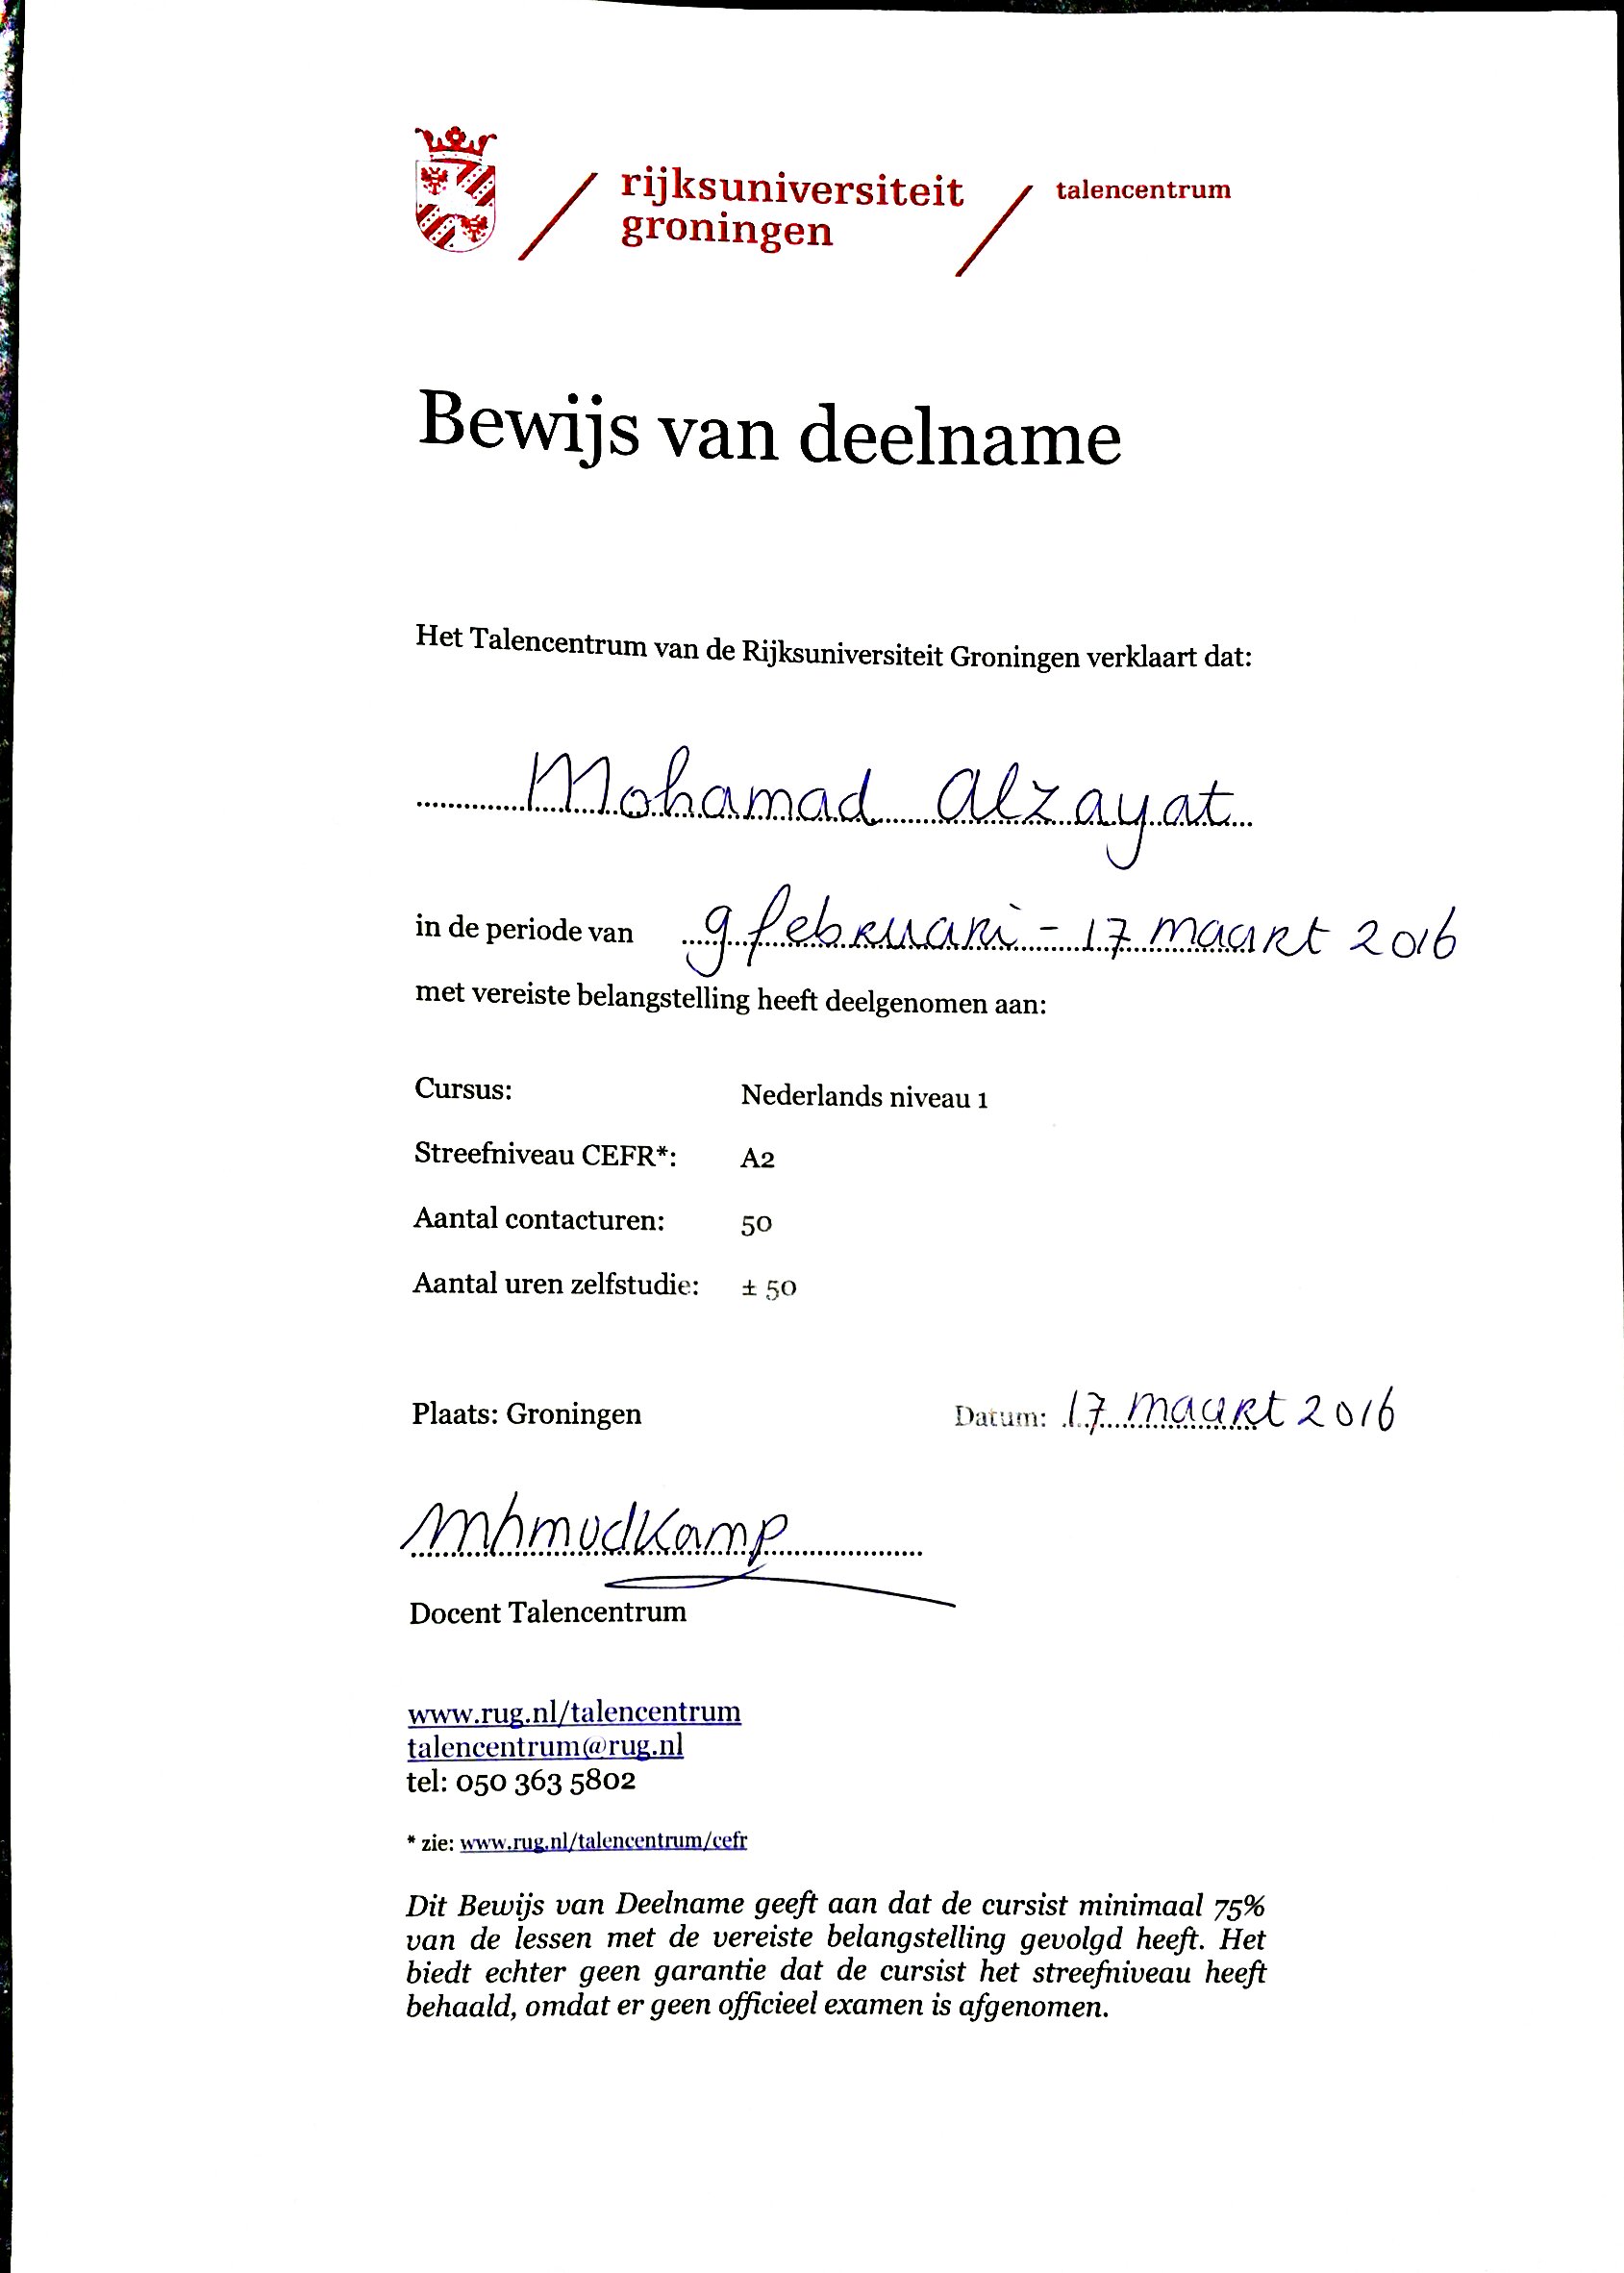 rijksuniversiteit
groningen
talencentrum
Bewijs van deelname
Het Talencentrum van de Rijksuniversiteit Groningen verklaart dat:
Mohamad Alzayat
in de periode van 9 februari - 17 maart 2016
met vereiste belangstelling heeft deelgenomen aan:
Cursus: Nederlands niveau 1
Streefniveau CEFR*: A2
Aantal contacturen: 50
Aantal uren zelfstudie: ± 50
Plaats: Groningen Datum: 17 maart 2016
Docent Talencentrum
www.rug.nl/talencentrum
talencentrum@rug.nl
tel: 050 363 5802
* zie: www.rug.nl/talencentrum/cefr
Dit Bewijs van Deelname geeft aan dat de cursist minimaal 75%
van de lessen met de vereiste belangstelling gevolgd heeft. Het
biedt echter geen garantie dat de cursist het streefniveau heeft
behaald, omdat er geen officieel examen is afgenomen.